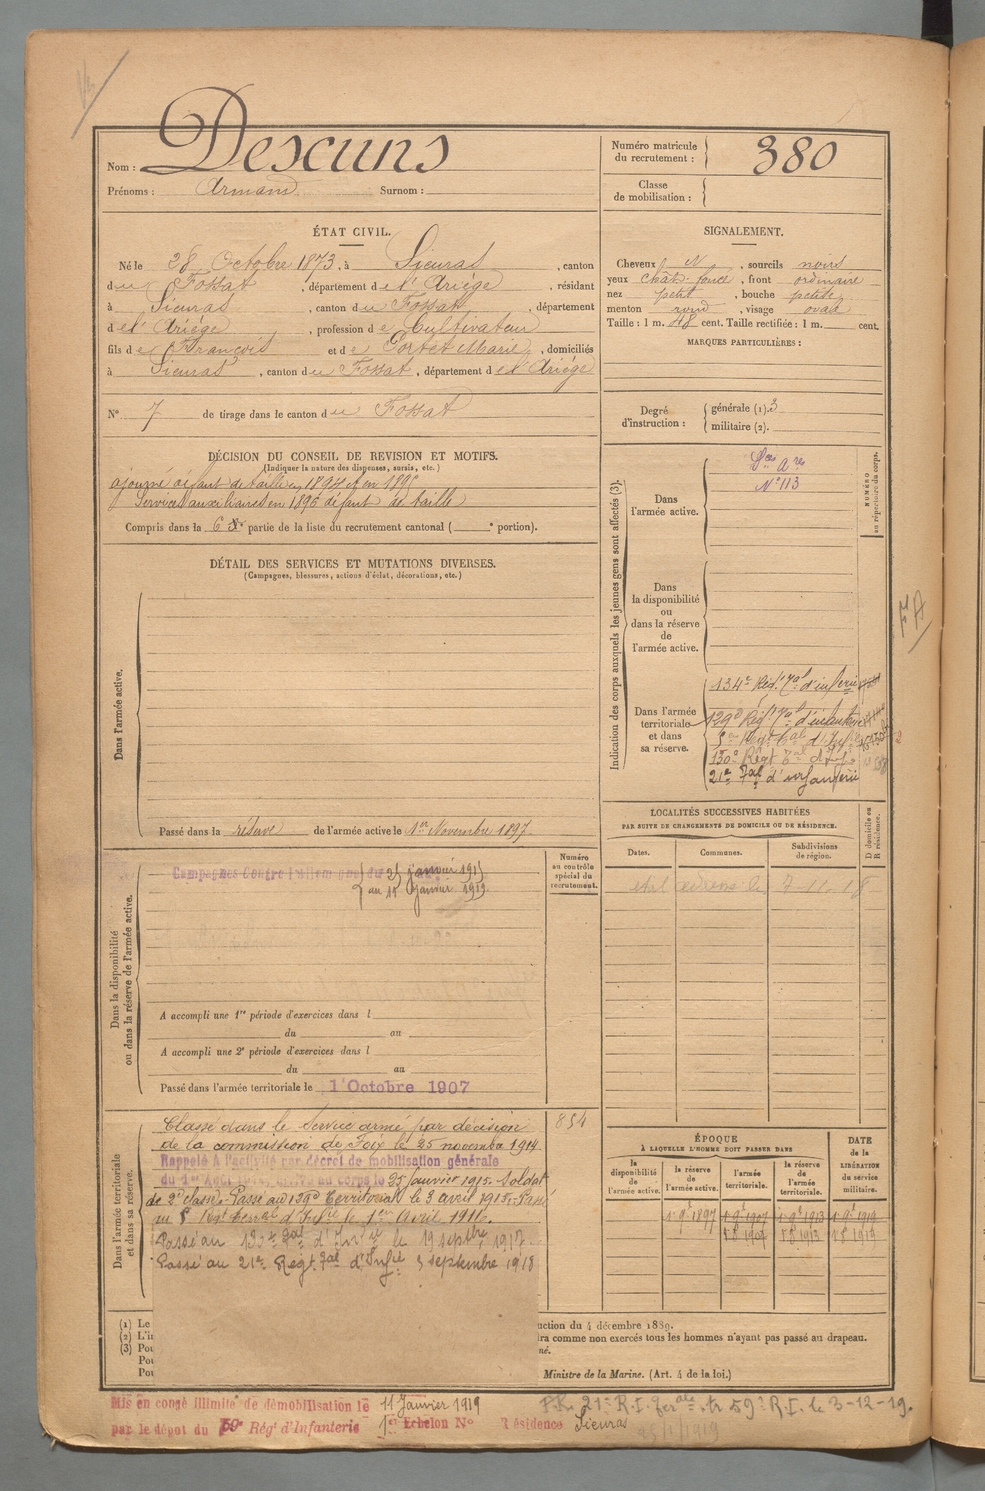 Nom : Descuns
Prénoms : Armand Surnom :
Numéro matricule du recrutement : 380
Classe de mobilisation :
ÉTAT CIVIL.
Né le 28 Octobre 1873, à Sieuras, canton
du Fossat, département de l'Ariège, résidant
à Sieuras, canton du Fossat, département
de l'Ariège, profession de Cultivateur
fils de François et de Portet Marie, domiciliés
à Sieuras, canton du Fossat, département de l'Ariège
N° 7 de tirage dans le canton du Fossat
SIGNALEMENT.
Cheveux N, sourcils noirs
yeux chât. foncé, front ordinaire
nez petit, bouche petite
menton rond, visage ovale
Taille : 1 m. 48 cent. Taille rectifiée : 1 m. cent.
MARQUES PARTICULIÈRES :
Degré d'instruction : générale (1). 3
militaire (2).
DÉCISION DU CONSEIL DE REVISION ET MOTIFS.
(Indiquer la nature des dispenses, sursis, etc.)
ajourné défaut de taille en 1894 et en 1895
Services auxiliaires en 1896 défaut de taille
Compris dans la 6e partie de la liste du recrutement cantonal ( e portion).
DÉTAIL DES SERVICES ET MUTATIONS DIVERSES.
(Campagnes, blessures, actions d'éclat, décorations, etc.)
Dans l'armée active.
Passé dans la réserve de l'armée active le 1er Novembre 1897.
Indication des corps auxquels les jeunes gens sont affectés (3).
NUMÉRO au répertoire du corps.
Dans l'armée active.
Sces Ares
N° 113
Dans la disponibilité ou dans la réserve de l'armée active.
Dans l'armée territoriale et dans sa réserve.
134e Régt Tal d'infanterie
129e Régt Tal d'infanterie
5me Régt Tal d'Infie
130e Régt Tal d'Infie
21e Tal d'infanterie
FA
LOCALITÉS SUCCESSIVES HABITÉES
PAR SUITE DE CHANGEMENTS DE DOMICILE OU DE RÉSIDENCE.
Dates. Communes. Subdivisions de région. D domicile ou R résidence.
7-11-18
Dans la disponibilité ou dans la réserve de l'armée active.
Numéro au contrôle spécial du recrutement.
Campagnes Contre l'Allemagne du 25 janvier 1915
au 11 Janvier 1919.
A accompli une 1re période d'exercices dans l
du au
A accompli une 2e période d'exercices dans l
du au
Passé dans l'armée territoriale le 1 Octobre 1907
Dans l'armée territoriale et dans sa réserve.
854
Classé dans le Service armé par décision
de la commission de Foix le 25 novembre 1914
Rappelé à l'activité par décret de mobilisation générale
du 1er Août 1914. Arrivé au corps le 25 Janvier 1915. Soldat
de 2e classe. Passé au 129e Territorial le 3 avril 1915. Passé
au 5e Régt terral d'Infie le 1er Avril 1916.
Passé au 130e Tal d'Infie le 19 septbre 1917.
Passé au 21e Regt Tal d'Infie 3 septembre 1918
ÉPOQUE
À LAQUELLE L'HOMME DOIT PASSER DANS
la disponibilité de l'armée active.
la réserve de l'armée active.
l'armée territoriale.
la réserve de l'armée territoriale.
DATE de la LIBÉRATION du service militaire.
1897 1907 1913 1919
1907 1913 1919
(1) Le
(2) L'in
(3) Pou
Pou
Pou
uction du 4 décembre 1889.
dra comme non exercés tous les hommes n'ayant pas passé au drapeau.
né.
Ministre de la Marine. (Art. 4 de la loi.)
Mis en congé illimité de démobilisation le 11 Janvier 1919
par le dépot du 59e Régt d'Infanterie 1er Echelon N° Résidence Sieuras
21e R.I. Terale tr. 59e R.I. le 3-12-19.
25/1/1919